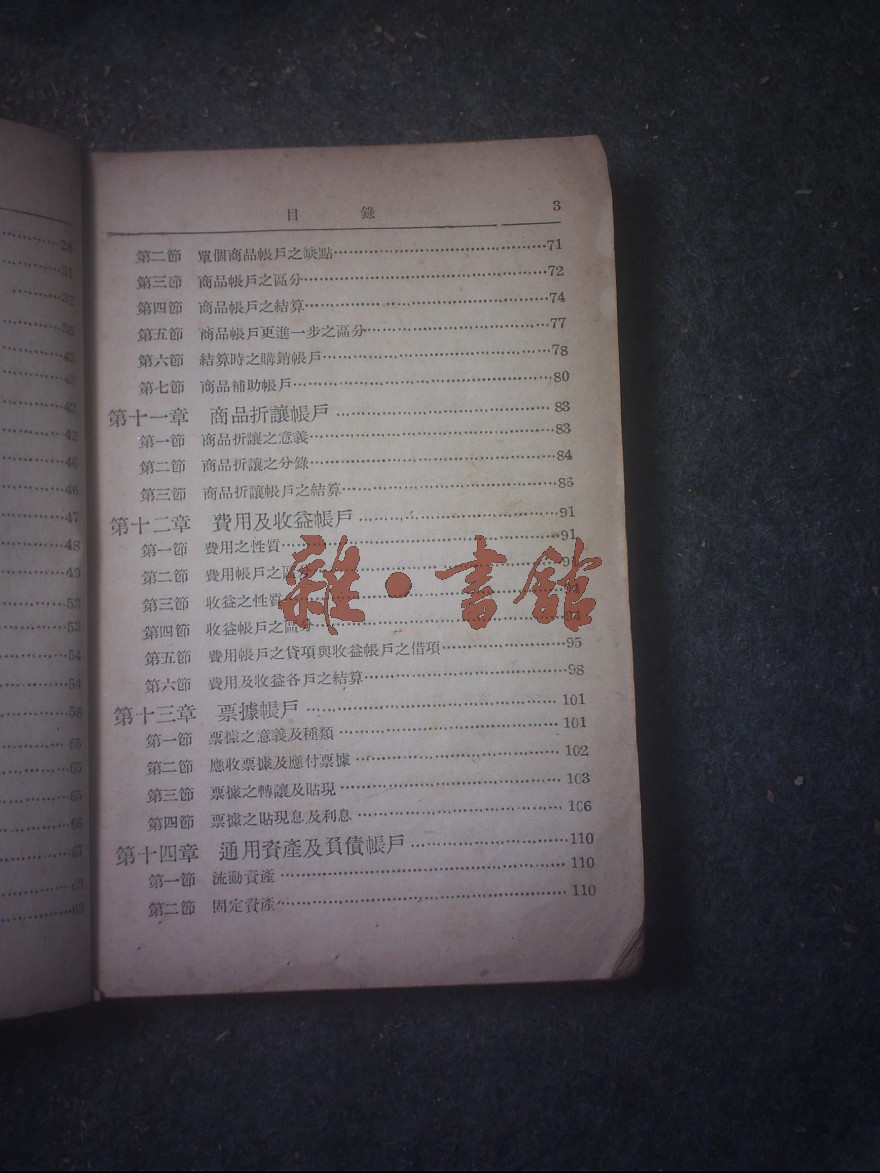 目錄 3
第二節 單個商品帳戶之缺點 71
第三節 商品帳戶之區分 72
第四節 商品帳戶之結算 74
第五節 商品帳戶更進一步之區分 77
第六節 結算時之購銷帳戶 78
第七節 商品補助帳戶 80
第十一章 商品折讓帳戶 83
第一節 商品折讓之意義 83
第二節 商品折讓之分錄 84
第三節 商品折讓帳戶之結算 86
第十二章 費用及收益帳戶 91
第一節 費用之性質 91
第二節 費用帳戶之區分
第三節 收益之性質
第四節 收益帳戶之區分
第五節 費用帳戶之貸項與收益帳戶之借項 95
第六節 費用及收益各戶之結算 98
第十三章 票據帳戶 101
第一節 票據之意義及種類 101
第二節 應收票據及應付票據 102
第三節 票據之轉讓及貼現 103
第四節 票據之貼現息及利息 106
第十四章 通用資產及負債帳戶 110
第一節 流動資產 110
第二節 固定資產 110
雜·書館
31
32
42
42
46
46
47
48
49
53
53
54
54
58
65
65
65
66
67
69
69